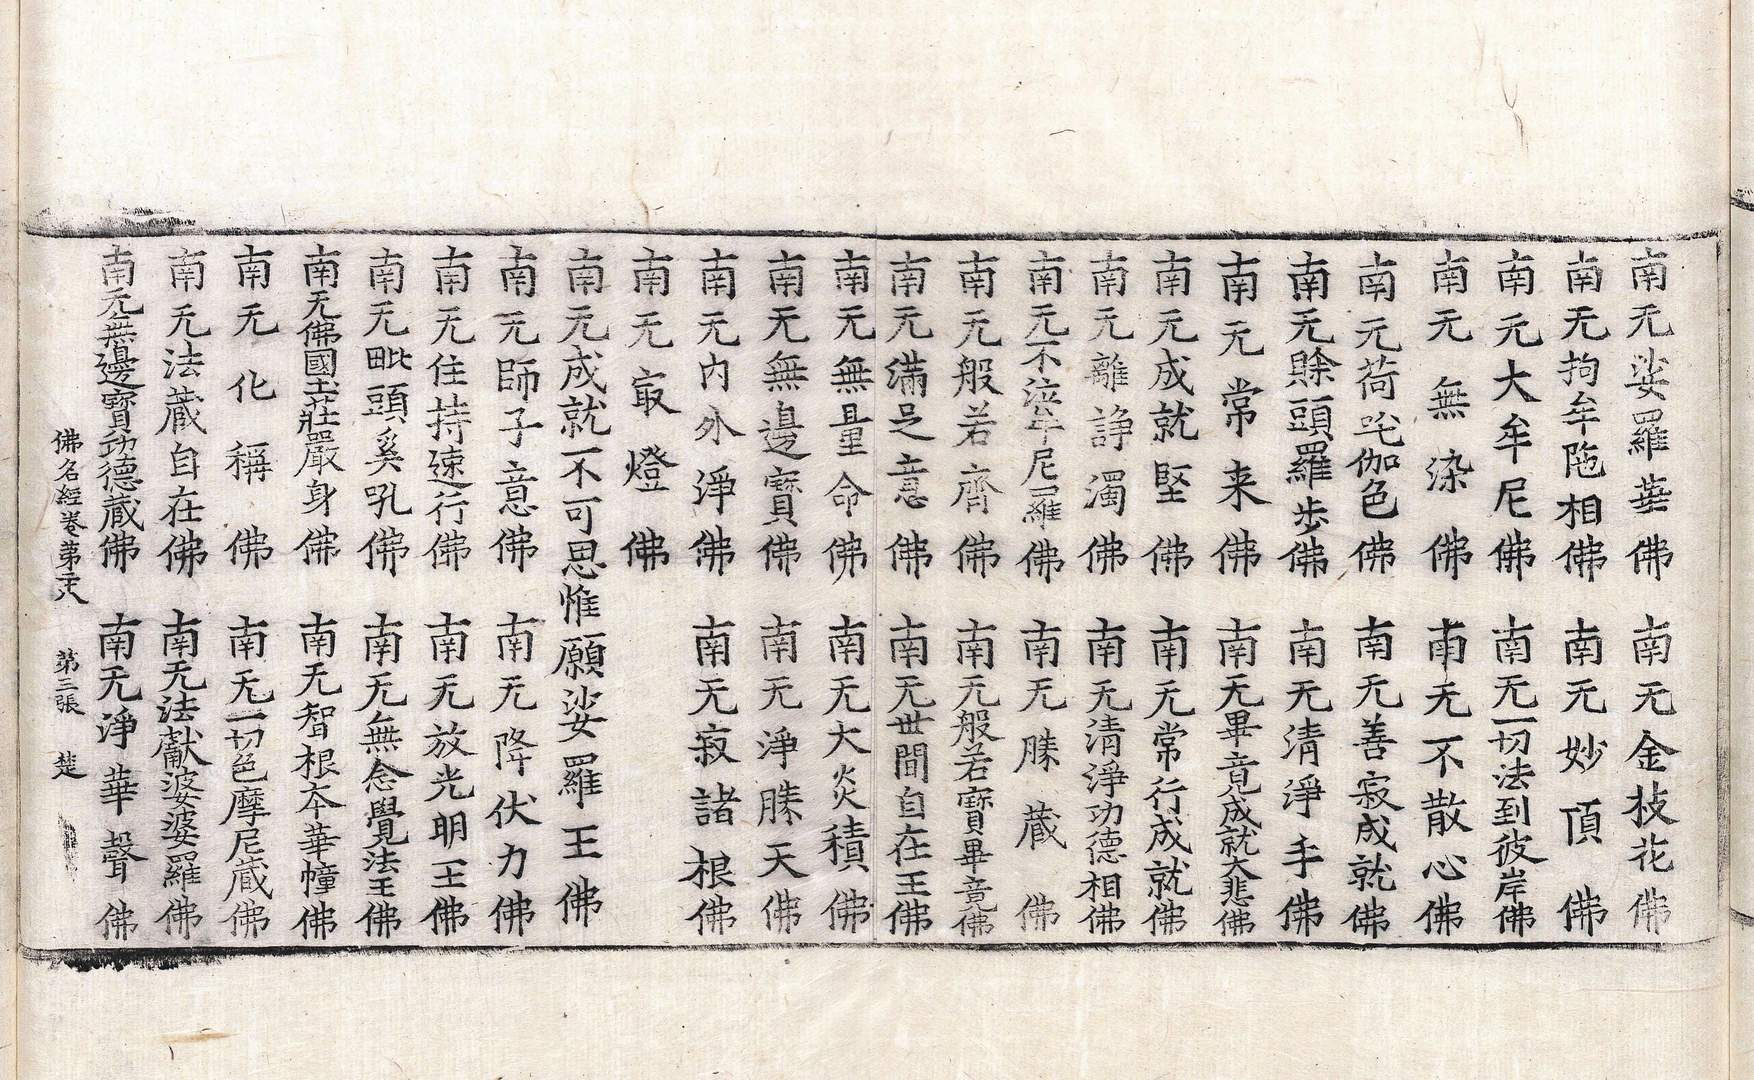 南无娑羅華佛 南无金枝花佛
南无拘牟陁相佛 南无妙頂佛
南无大牟尼佛 南无一切法到彼岸佛
南无無染佛 南无不散心佛
南无荷吒伽色佛 南无善寂成就佛
南无賖頭羅步佛 南无清淨手佛
南无常来佛 南无畢竟成就大悲佛
南无成就堅佛 南无常行成就佛
南无離諍濁佛 南无清淨功德相佛
南无不泣牟尼羅佛 南无勝藏佛
南无般若齊佛 南无般若寶畢竟佛
南无滿足意佛 南无世間自在王佛
南无無量命佛 南无大炎積佛
南无無邊寶佛 南无淨勝天佛
南无内外淨佛 南无寂諸根佛
南无㝡燈佛
南无成就不可思惟願娑羅王佛
南无師子意佛 南无降伏力佛
南无住持速行佛 南无放光明王佛
南无毗頭奚吼佛 南无無念覺法王佛
南无佛國土莊嚴身佛 南无智根夲華幢佛
南无化稱佛 南无一切色摩尼蔵佛
南无法蔵自在佛 南无法獻婆婆羅佛
南无無邊寶㓛德蔵佛 南无淨華聲佛
佛名經卷第二十八 第三張 楚